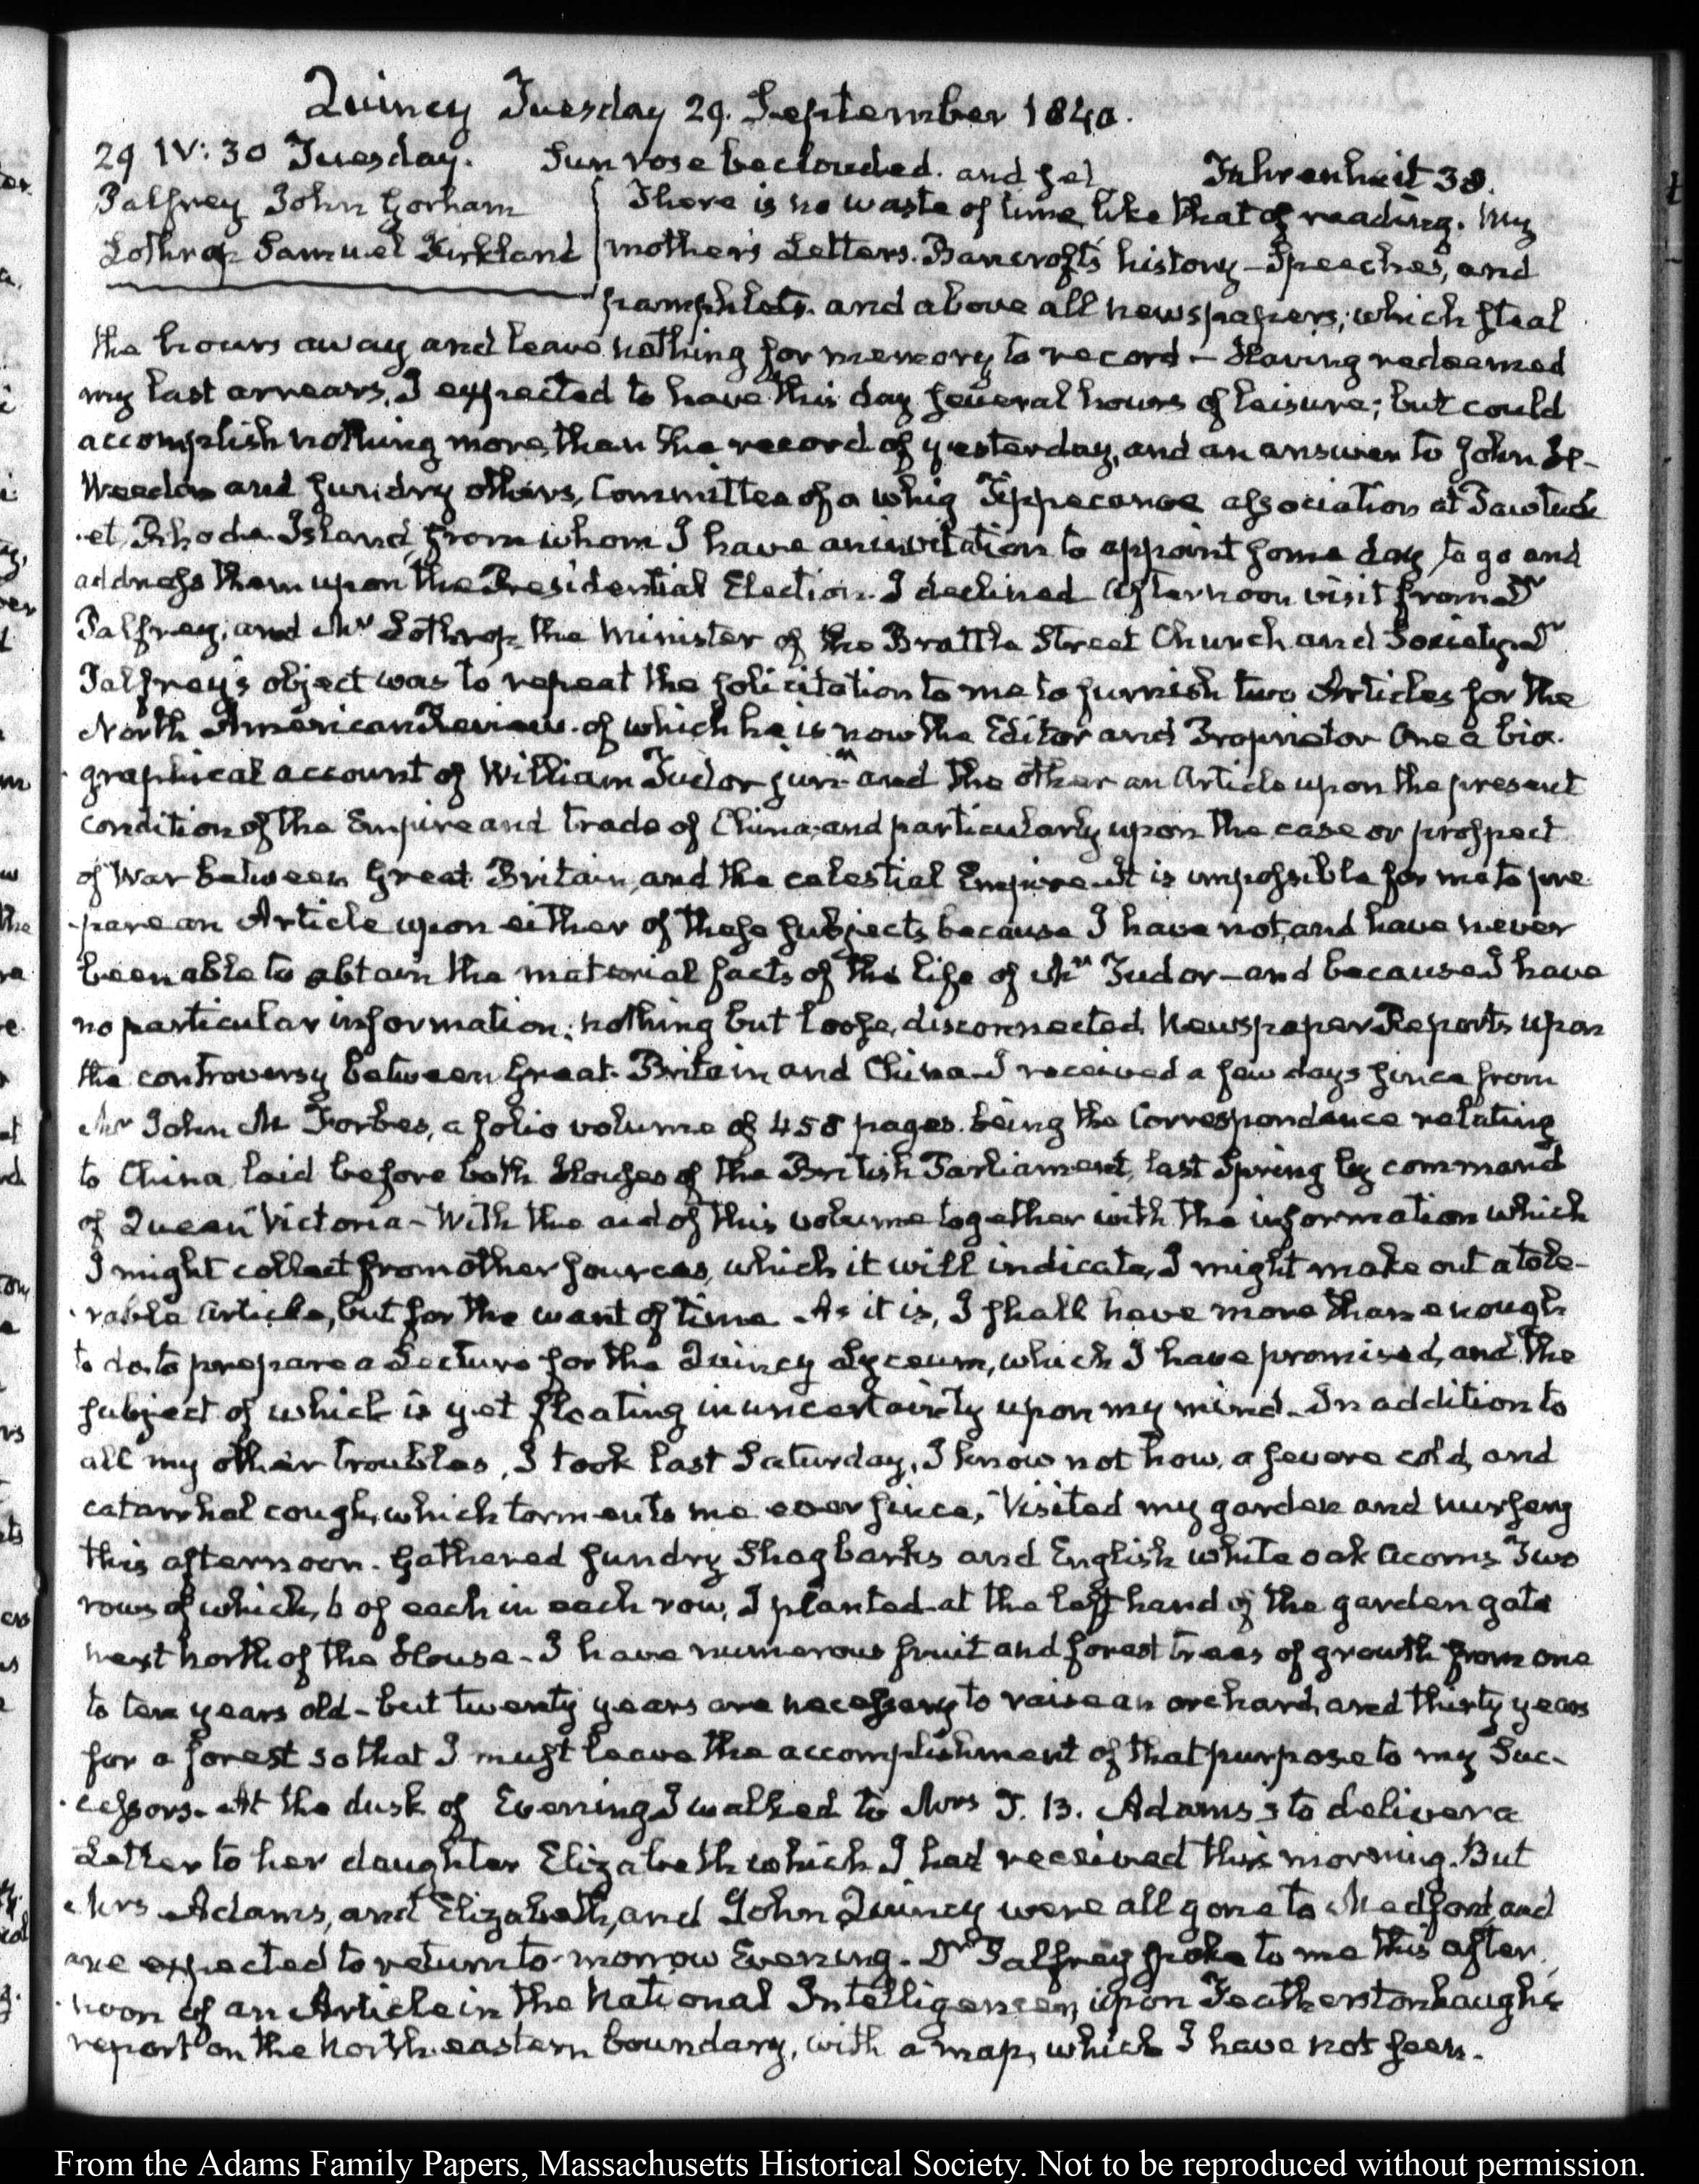 Quincy Tuesday 29. September 1840.
29 IV: 30 Tuesday. Sun rose beclouded. and set Fahrenheit 38.
Palfrey John Gorham
Lothrop Samuel Kirkland
There is no waste of time like that of reading. My
mother's Letters. Bancroft's history – Speeches, and
pamphlets. and above all newspapers; which steal
the hours away and leave nothing for memory to record – Having redeemed
my last arrears, I expected to have this day several hours of leisure; but could
accomplish nothing more than the record of yesterday, and an answer to John
Weeden and sundry others, Committee of a whig Tippecanoe association at Pawtuck
-et, Rhode Island, from whom I have an invitation to appoint some day to go and
address them upon the Presidential Election. I declined Afternoon visit from Dr
Palfrey, and Mr Lothrop the Minister of the Brattle Street Church and Society. Dr
Palfrey's object was to repeat the solicitation to me to furnish two Articles for the
North American Review. of which he is now the Editor and Proprietor One a bio-
graphical account of William Tudor junr and the other an Article upon the present
condition of the Empire and trade of China, and particularly upon the case or prospect
of War between Great Britain, and the celestial Empire. It is impossible for me to pre-
-pare an Article upon either of these subjects because I have not, and have never
been able to obtain the material facts of the life of Mr Tudor – and because I have
no particular information; nothing but loose, disconnected Newspaper Reports upon
the controversy between Great Britain and China – I received a few days since from
Mr John M Forbes, a folio volume of 458 pages. being the Correspondence relating
to China laid before both Houses of the British Parliament, last Spring by command
of Queen Victoria – With the aid of this volume together with the information which
I might collect from other sources, which it will indicate, I might make out a tole-
-rable Article, but for the want of time. As it is, I shall have more than enough
to do, to prepare a Lecture for the Quincy Lyceum, which I have promised, and the
subject of which is yet floating in uncertainty upon my mind. In addition to
all my other troubles, I took last Saturday, I know not how, a severe cold, and
catarrhal cough, which torments me ever since, Visited my garden and nursery
this afternoon. Gathered sundry Shagbarks and English white oak Acorns Two
rows of which, 6 of each in each row, I planted at the left hand of the garden gate
next north of the House – I have numerous fruit and forest trees of growth from one
to ten years old – but twenty years are necessary to raise an orchard, and thirty years
for a forest so that I must leave the accomplishment of that purpose to my Suc-
-cessors. At the dusk of Evening I walked to Mrs T. B. Adams's to deliver a
Letter to her daughter Elizabeth which I had received this morning. But
Mrs Adams, and Elizabeth, and John Quincy were all gone to Medford, and
are expected to return to-morrow Evening. Dr Palfrey spoke to me this after-
-noon of an Article in the National Intelligencer, upon Featherstonhaugh's
report on the North-eastern boundary, with a map, which I have not seen.
From the Adams Family Papers, Massachusetts Historical Society. Not to be reproduced without permission.